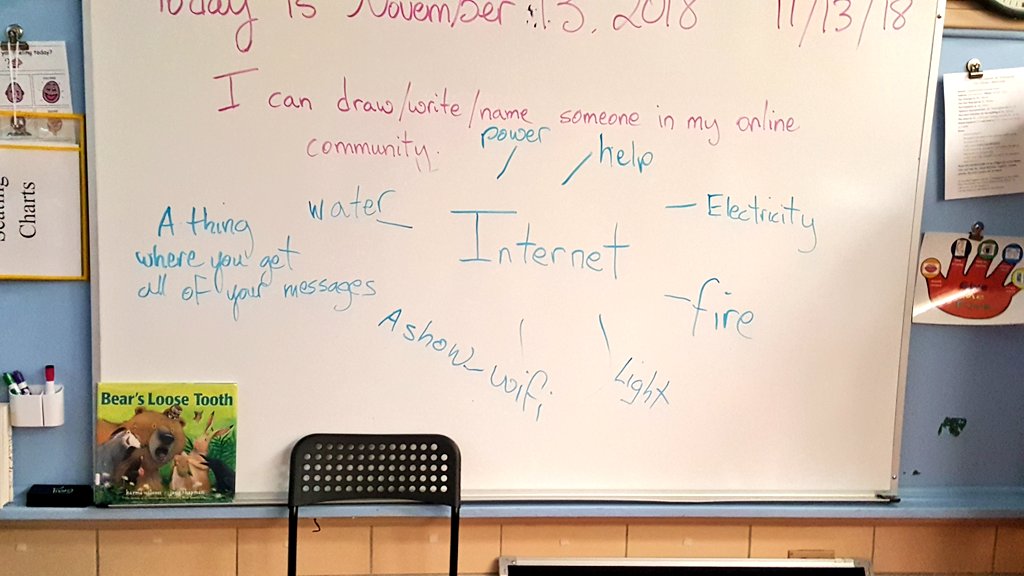 Today is November 13, 2018 11/13/18
I can draw/write/name someone in my online
community.
power
help
water
Electricity
A thing
where you get
all of your messages
Internet
fire
A show
wifi
Light
Seating
Charts
Bear's Loose Tooth